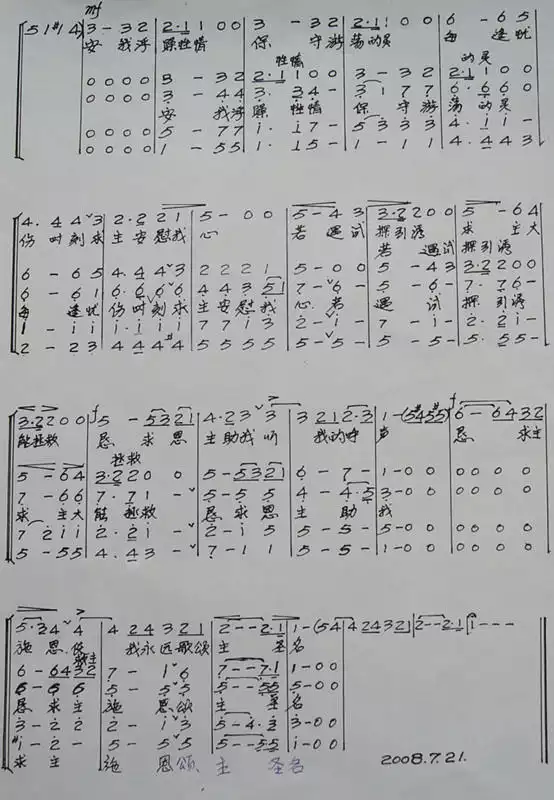 mf
5 1 #1 4) 3 - 3 2 2·1 1 0 0 3 - 3 2 2·1 1 0 0 6 - 6 5
安 我浮 躁性情 保 守游 荡的灵 每 逢忧
性情 的灵
0 0 0 0 3 - 3 2 2·1 1 0 0 3 - 3 2 2·1 1 0 0
0 0 0 0 3 - 4 4 3 - 4 3 3 - 1 7 7 6 · 6 6 0
安 我浮 躁 性情 保 守游 荡 的灵
0 0 0 0 5 - 7 7 i · i 7 - 5 3 3 3 4 · 1 1 -
0 0 0 0 1 - 5 5 1 · 1 5 - 1 - 1 1 4 · 4 4 3
4 · 4 4 3 2 · 2 2 1 5 - 0 0 5 - 4 3 3·2 2 0 0 5 - 6 4
伤时刻求 主安慰我 心 若 遇试 探引诱 求 主大
若 遇试 探引诱
6 - 6 5 4 · 4 4 3 2 2 2 1 5 - 0 0 5 - 4 3 3·2 2 0 0
6 - 6 1 6 · 6 6 6 4 4 3 5 1 7 - 6 - 5 - 6 - 7 · 7 6 -
每 逢忧 伤时刻求 主安慰我 心 若 遇 试 探 引诱
1 - i i i · i i i 7 7 i 3 2 - i - 7 - i - 2 · 2 i -
2 - 2 3 4 4 4 #4 5 5 5 5 5 - 5 - 5 - 5 - 5 · 5 5 -
3·2 2 0 0 f 5 - 5 3 2 1 4 · 2 3 3 3 2 1 2 · 3 1 - (5 #4 #5 5) f 6 - 6 4 3 2
能拯救 恳 求恩 主助我听 我的呼 声 恳 求主
拯救
5 - 6 4 3·2 2 0 0 5 - 5 3 2 1 6 - 7 - 1 - 0 0 0 0 0 0
7 - 6 6 7 · 7 1 - 5 - 5 5 4 - 4 · 5 3 - 0 0 0 0 0 0
求 主大 能 拯救 恳 求恩 主 助 我
7 2 i i 2 · 2 i - 2 - i 5 5 - 5 - 5 - 0 0 0 0 0 0
5 - 5 5 4 · 4 3 - 7 - 1 1 5 - 5 - 1 - 0 0 0 0 0 0
5 · 3 4 4 4 2 4 3 2 1 2 - - 2·1 1 - (5 4 4 2 4 3 2 2 - - 2·1 1 - - -
施恩, 使 我永远歌颂 主 圣名
6 - 6 4 3 2 7 - 1 6 7 - - 7·1 1 - 0 0
6 - 6 6 5 - 5 5 5 - - 5 5 5 - 0 0
恳 求主 施 恩颂 主 圣名
3 - 2 2 2 - i 3 5 - 4 · 2 3 - 0 0
#i - 2 - 5 - 5 5 5 - - 5 5 i - 0 0
求 主 施 恩颂 主 圣名
2008.7.21.